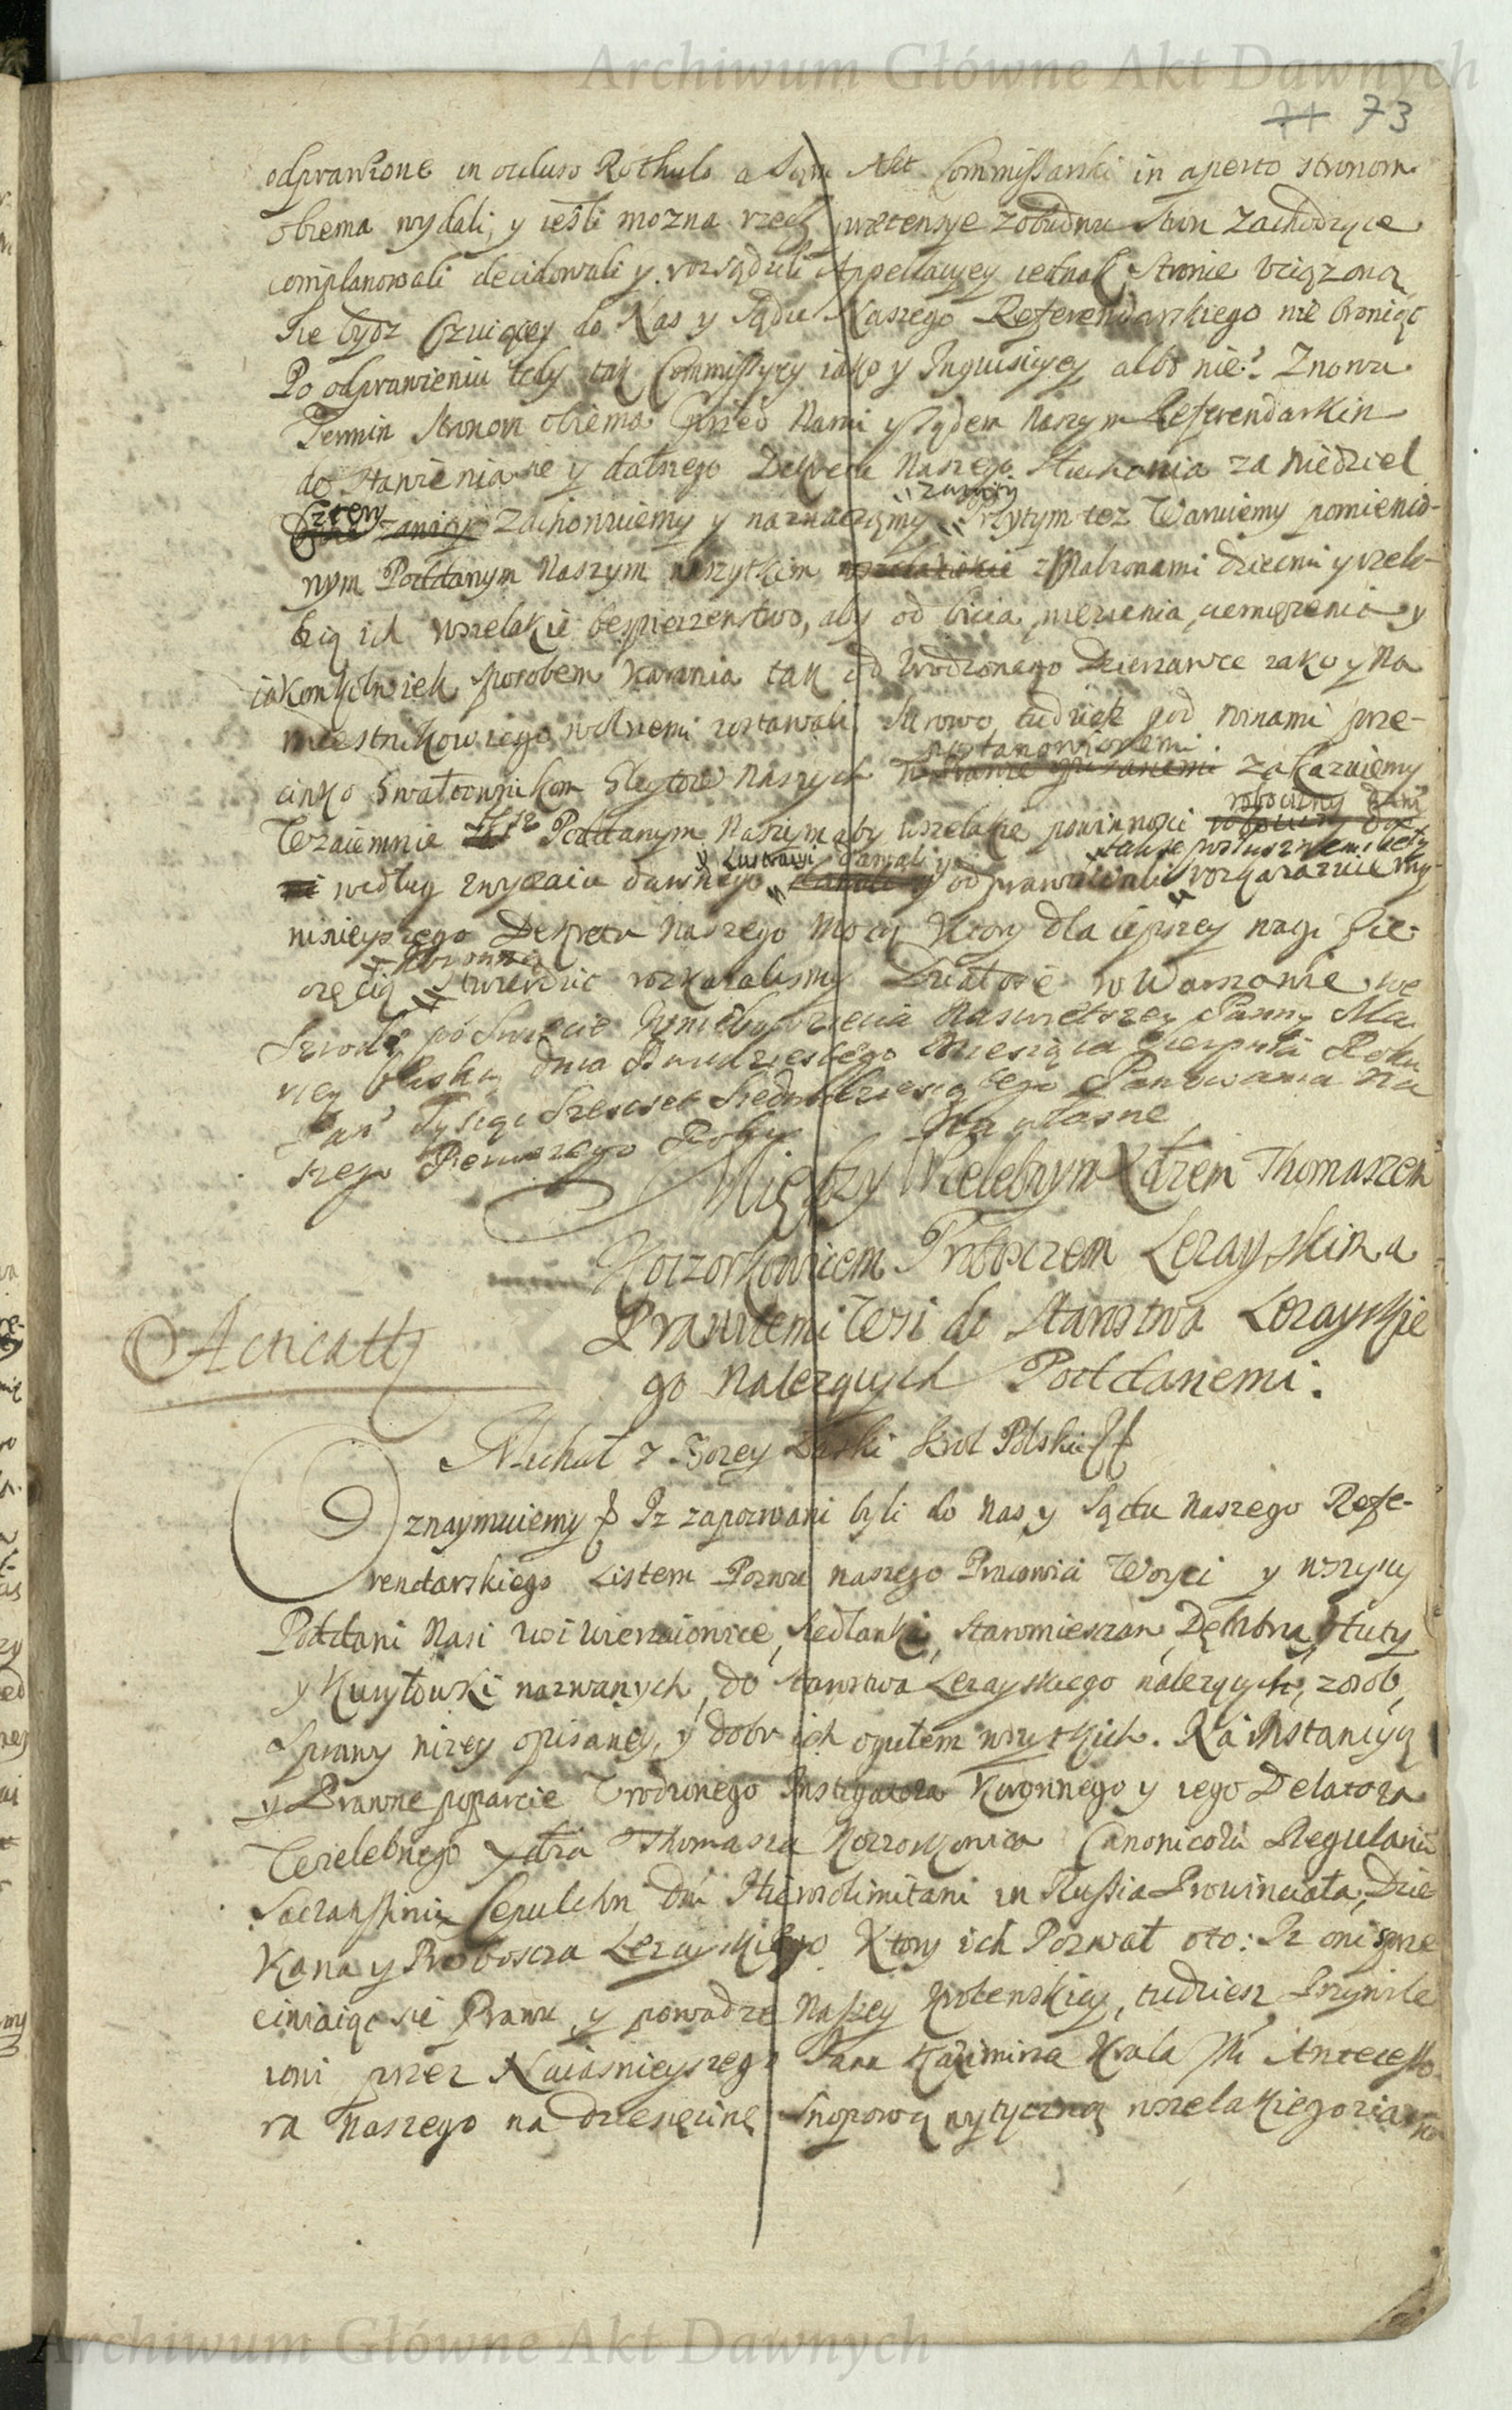 Archiwum Główne Akt Dawnych
71 73
odprawione in ocluso Rothulo a Sąm Akt Commissarski in aperto stronom
obiema wydali, y ieśli mozna rzecz praetensye zobudwu stron zachodzące
complanowali decidowali y rozsądzili Appellacyey iednak stronie vciązoną
sie bydz czuiącey do Nas y Sądu Naszego Referendarskiego nie broniąc
Po odprawieniu tedy tak Commissyey iako y Inquisicyey albo nie. Znowu
Termin stronom obiema przed Nami y Sądem Naszym Referendarskim
do stawienia sie y dalszego Dekretu Naszego słuchania za Niedziel
cztery zachowuiemy y naznaczamy zawity Przytym tez Waruiemy pomienio-
nym Poddanym Naszym wszytkim wszelakie z Małzonami dziecmi y czela-
dzią ich wszelakie bespieczenstwo, aby od bicia, wiezienia, ciemięzenia y
iakomkolwiek sposobem karania tak od Vrodzonego Dzierzawce iako y Na
miestnikow iego wolnemi zostawali, surowo tudziesz pod winami prze-
ciwko Gwałtownikom Gleytow Naszych postanowionemi zakazuiemy
Wzaiemnie tysz Poddanym Naszym aby wszelakie powinnosci robocizny dani
według zwyczaiu dawnego y Lustracyi dawali y odprawowali także posłusznemi byli rozkazuiemy
ninieyszego Dekretu Naszego mocą Ktory dla lepszey wagi Pie-
częcią Koronną stwierdzic rozkazalismy. Działo sie w Warszawie we
Srzodę po Swięcie Wniebowzięcia Naswiętszey Panny Ma
ryey blisko dnia dwudziestego Miesiąca Sierpnia Roku
Pan' Tysiąc Szescset Siedmdziesiątego Panowania Na
szego Pierwszego Roku Na własne
Między Wielebnym Xdzem Thomaszem
Koczorkowicem Proboszczem Lezayskim a
Prawitemi Wsi do Starostwa Lezayskie
go Nalezących Poddanemi.
Acticatt
Michał z Bozey Łaski Krol Polski
Oznaymuiemy Iz zapozwani byli do Nas y Sądu Naszego Refe-
rendarskiego Listem Pozwu naszego Pracowici Woyci y wszyscy
Poddani Nasi wsi Wierzawice, Siedlanki, Staromieszan, Dębna, Huty
y Kuryłowki nazwanych, do starostwa Lezayskiego nalezących, z osob,
sprawy nizey opisaney, y dobr ich ogułem wszytkich. Na Instancyą
y Prawne poparcie Vrodzonego Instigatora Koronnego y iego Delatora
Wielebnego Xdza Thomasza Koczorkowica Canonicorū Regulariū
Sacrosancti Sepulchri Dni Hierosolimitani in Russia Prowinciała, Dzie
kana y Proboscza Lezayskiego. Ktory ich Pozwał oto: Iz oni sprze
ciwiaiąc sie Prawu y powadze Naszey Krolewskiey, tudziesz Przywile
iowi przez Naiasnieyszego Iana Kazimirza Krola Jmć Antecesso
ra Naszego na dziesięcinę snopową wytyczną wszelakiego ziarna
Archiwum Główne Akt Dawnych